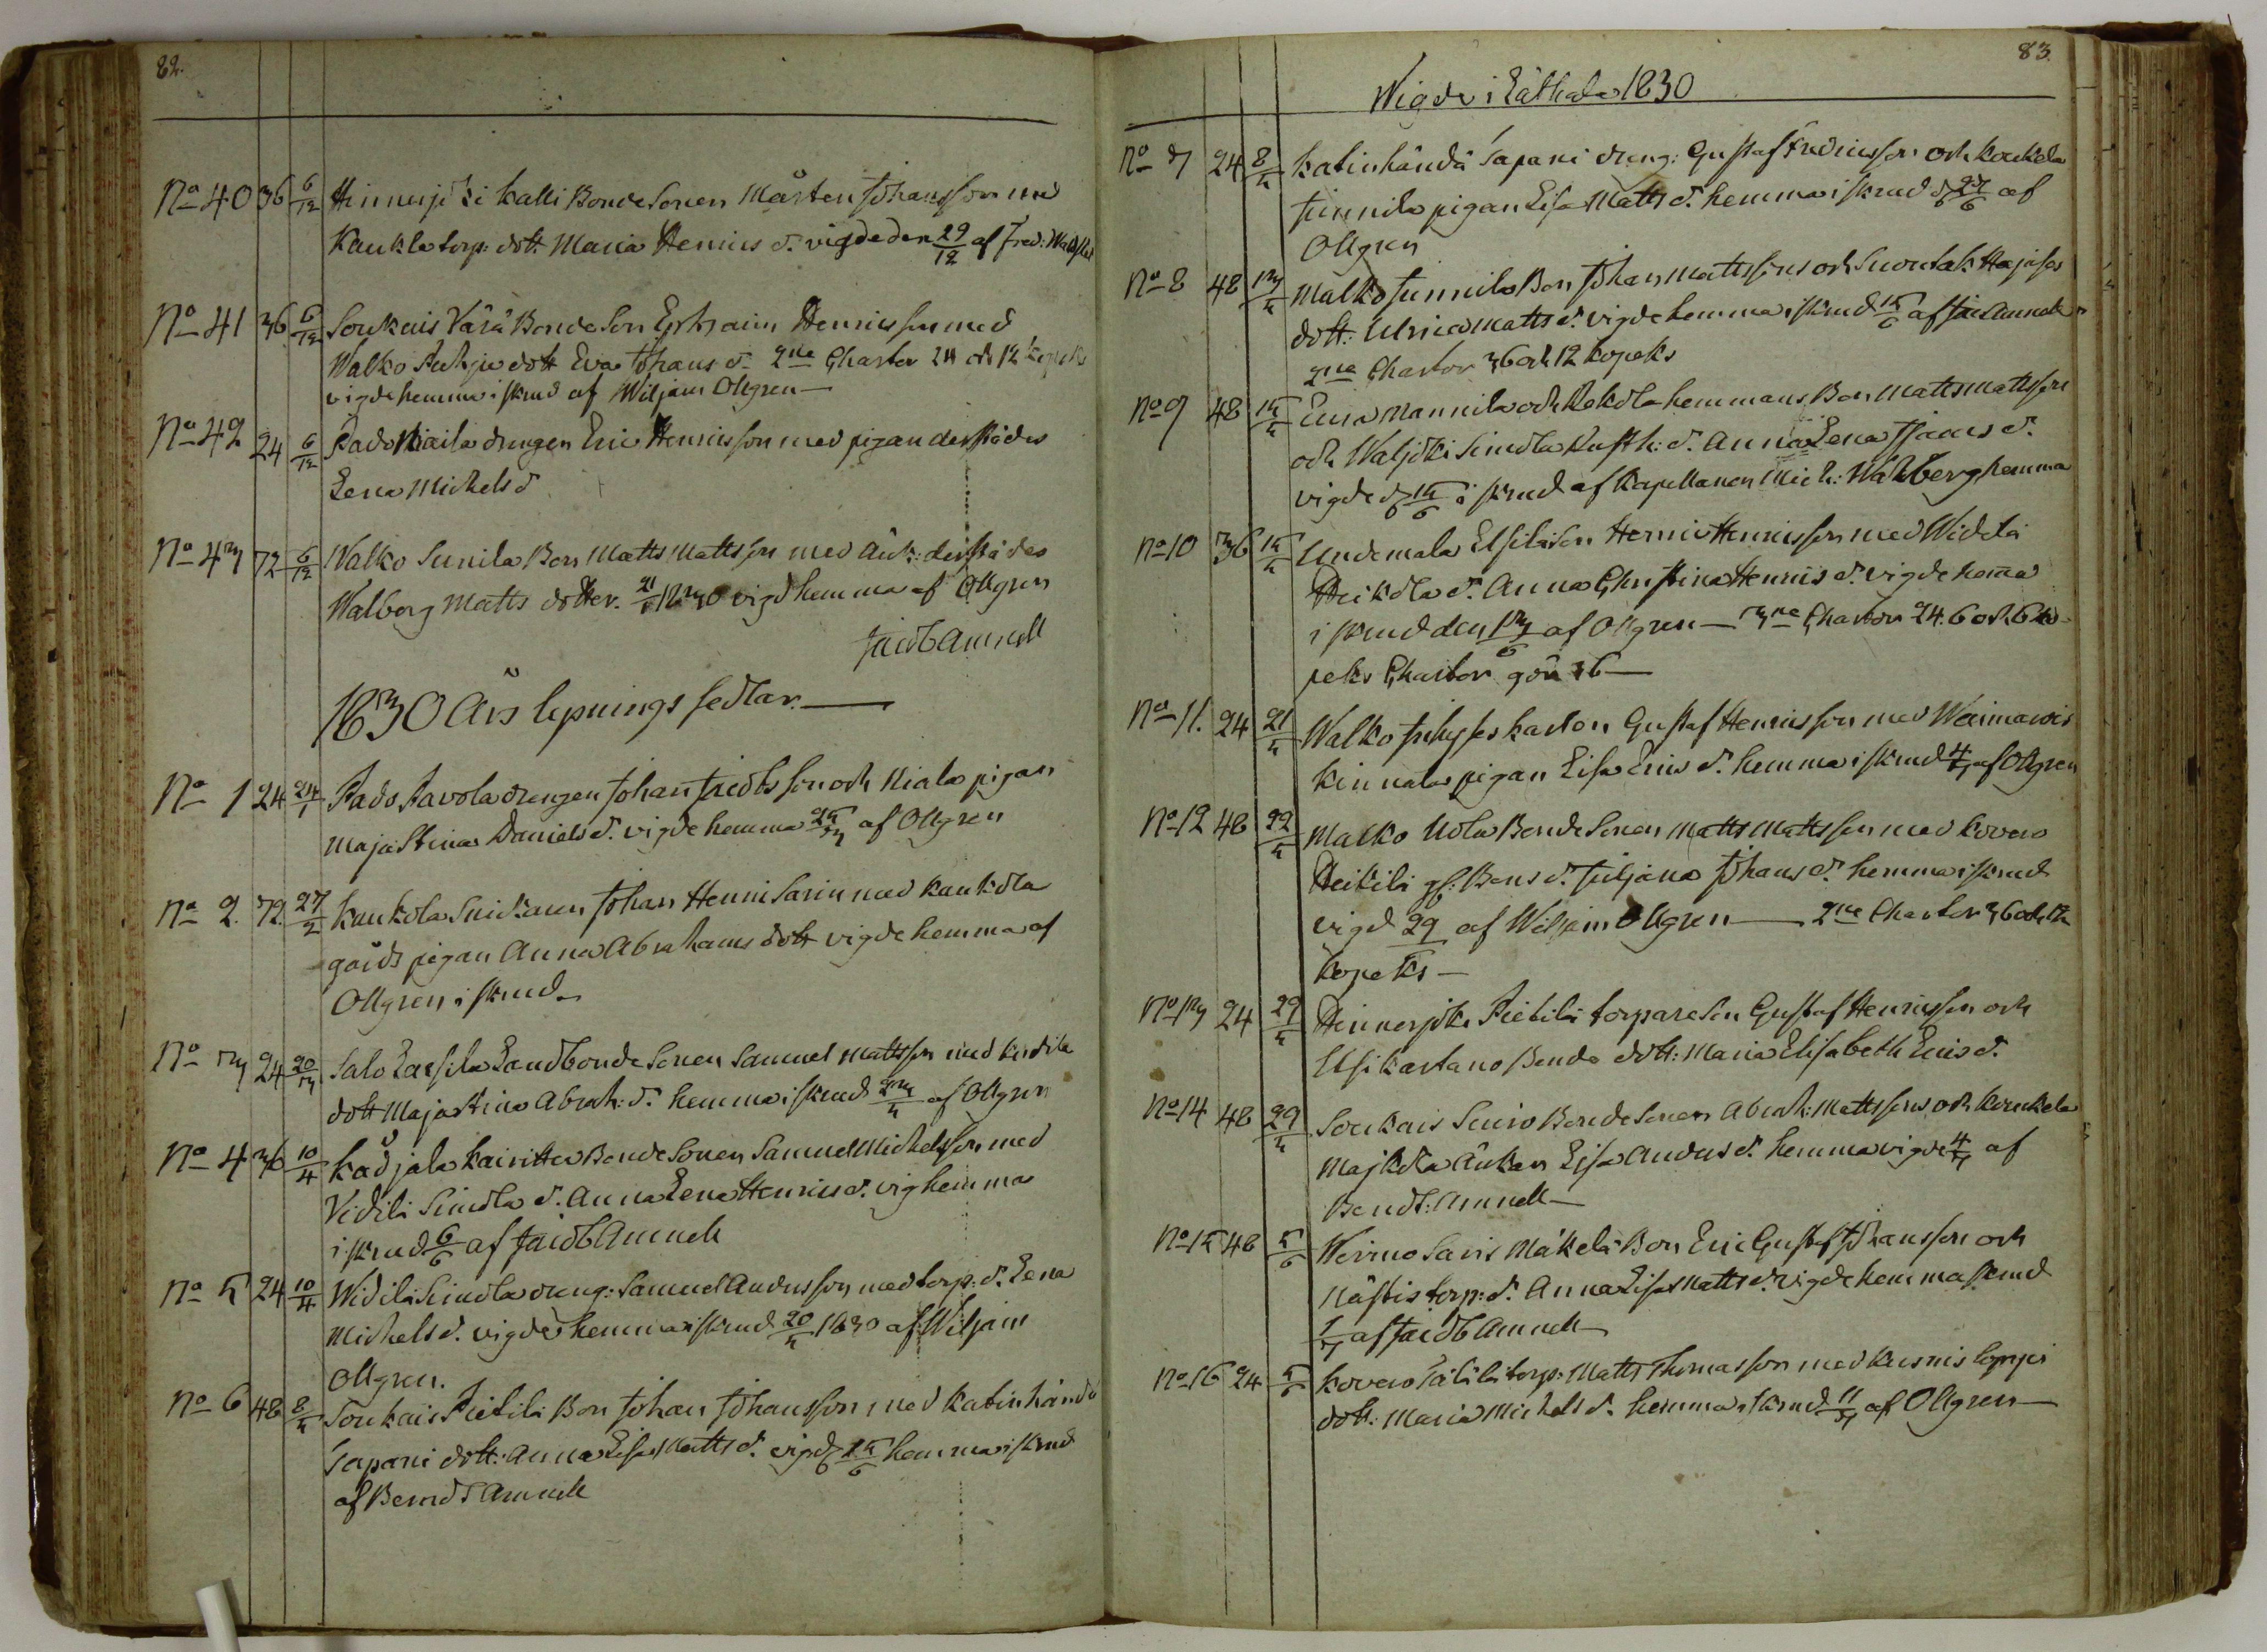 82.
No 40 36 6/12 Hinnerjoki Kalli Bonde Sonen Mårten Johansson med
Kaukla torp: dott Maria Henrics d. vigde den 29/12 af Fred:
No 41 36 6/12 Soukais Värä Bonde Son Ephraim Henricsson med
Walko dott Eva Johans d. 2ne Chartor 24 och 12 kopeks
vigde hemma i skrud af Wiljam Ollgren —
No 42 24 6/12 Pado Niaila drengen Eric Henricsson med pigan derstädes
Lena Michels d
No 43 72 6/12 Walko Sunila Bon Matts Mattsson med Änk: derstädes
Walborg Matts dotter. 21/1 1830 vigd hemma af Ollgren
Jacob Amnell
1830 Års lysnings sedlar. —
No 1 24 24/1 Pado Pavola drengen Johan Jacobsson och Niala pigan
Maja Stina Daniels d. vigde hemma 25/3 af Ollgren
No 2. 72. 27/2 Kaukola Snickaren Johan Henric Sarin med Kaukola
gårds pigan Anna Abrahams dott vigde hemma af
Ollgren i skrud
No 3 24 20/3 Salo Larsila Landbonde Sonen Samuel Mattsson med
dott Maja Stina Abrah: d. hemma i skrud 23/5 af Ollgren
No 4 36 10/4 Kadjala Kairitten Bonde Sonen Samuel Michelsson med
Vidilä Simola d. Anna Lena Henrics d. vig hemma
i skrud 6/6 af Jacob Amnell
No 5 24 10/4 Widilä Simola dreng: Samuel Andersson med torp: d. Lena
Michels d. vigde hemma i skrud 20/5 1830 af Wiljam
Ollgren.
No 6 48 8/5 Soukais Pietilä Bon Johan Johansson med Katinhändä
Tapani dott: Anna Lisa Matts d. vigd 15/6 hemma i skrud
af Berndt Amnell
83.
Wigde i Säthala 1830
No 7 24 8/5 Katinhändä Tapani dreng: Gustaf Fredricsson och Koukela
Junnila pigan Lisa Matts d. hemma i skrud d 27/6 af
Ollgren
No 8 48 13/5 Malko Junnila Bon Johan Mattsson och
dott: Ulrica Matts d. vigde hemma i skrud 15/6 af Jac Amnell
2ne Chartor 36 och 12 kopeks
No 9 48 15/5 Eura Mannila och Rekola hemmans Bon Matts Mattsson
och Waljoki Simola Rusth: d. Anna Lena d.
vigde d 15/6 i skrud af Kapellanen Mich: Wahlberg hemma
No 10 36 15/5 Undemala Elsilä Son Henric Henricsson med Widilä
Heikola d. Anna Christina Henrics d. vigde hemma
i skrud den 13/6 af Ollgren — 3ne Chartor 24. 6 och 6 ko-
peks Chartor gör 36 —
No 11. 24 21/5 Walko Gustaf Henricsson med
Kinnala pigan Lisa Erics d. hemma i skrud 4/7 af Ollgren
No 12 48 22/5 Malko Uola Bonde Sonen Matts Mattsson med Kovero
Heikilä gl: Bons d. Juljana Johans d. hemma i skrud
vigd 29/6 af Wiljam Ollgren — 2ne Chartor 36 och 12
kopeks —
No 13 24 29/5 Hinnerjoki Pietilä torpare Son Gustaf Henricsson och
Elsi Kartano Bonde dott: Maria Elisabeth Erics d.
No 14 48 29/5 Soukais Bonde Sonen Abrah: Mattsson och Koukela
Majkola Änkan Lisa Anders d. hemma vigde 4/7 af
Bendt: Amnell —
No 15 48 5/6 Wermo Saris Mäkelä Bon Eric Gustaf Johansson och
Nästis torp: d. Anna Lisa Matts d. vigde hemma skrud
1/7 af Jacob Amnell —
No 16 24 5/6 Kovero Pätilä torp: Matts Thomasson med
dott: Maria Michels d. hemma i skrud 11/7 af Ollgren —